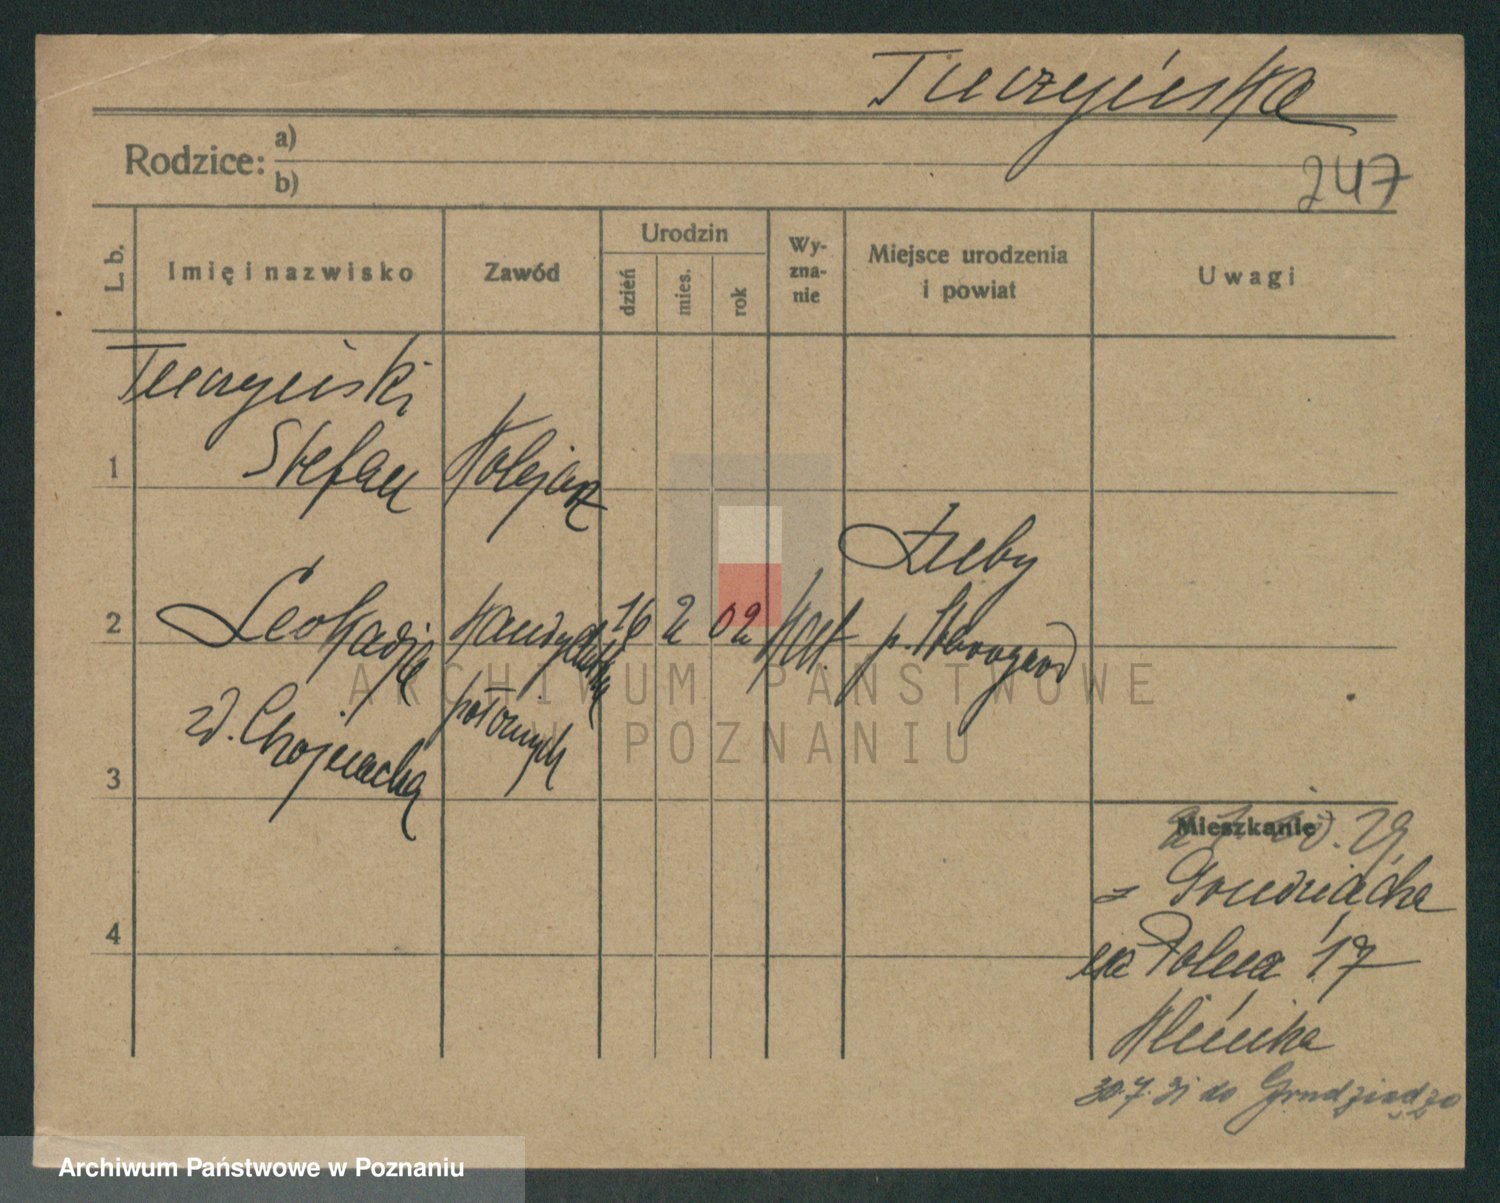 Tuczyńska
Rodzice: a)
b)
247
L. b.
Imię i nazwisko
Zawód
Urodzin
dzień
mies.
rok
Wy-
zna-
nie
Miejsce urodzenia
i powiat
Uwagi
Tuczyński
1 Stefan Kolejarz
Zuby
2 Leokadja kandydatka 16 2 02 kat. p. Starogard
zd. Chojnacka położnych
3
4
Mieszkanie
29
z Grudziącka
na Polna 17
Klinika
30.7.31 do Grudziądza
ARCHIWUM PAŃSTWOWE
W POZNANIU
Archiwum Państwowe w Poznaniu